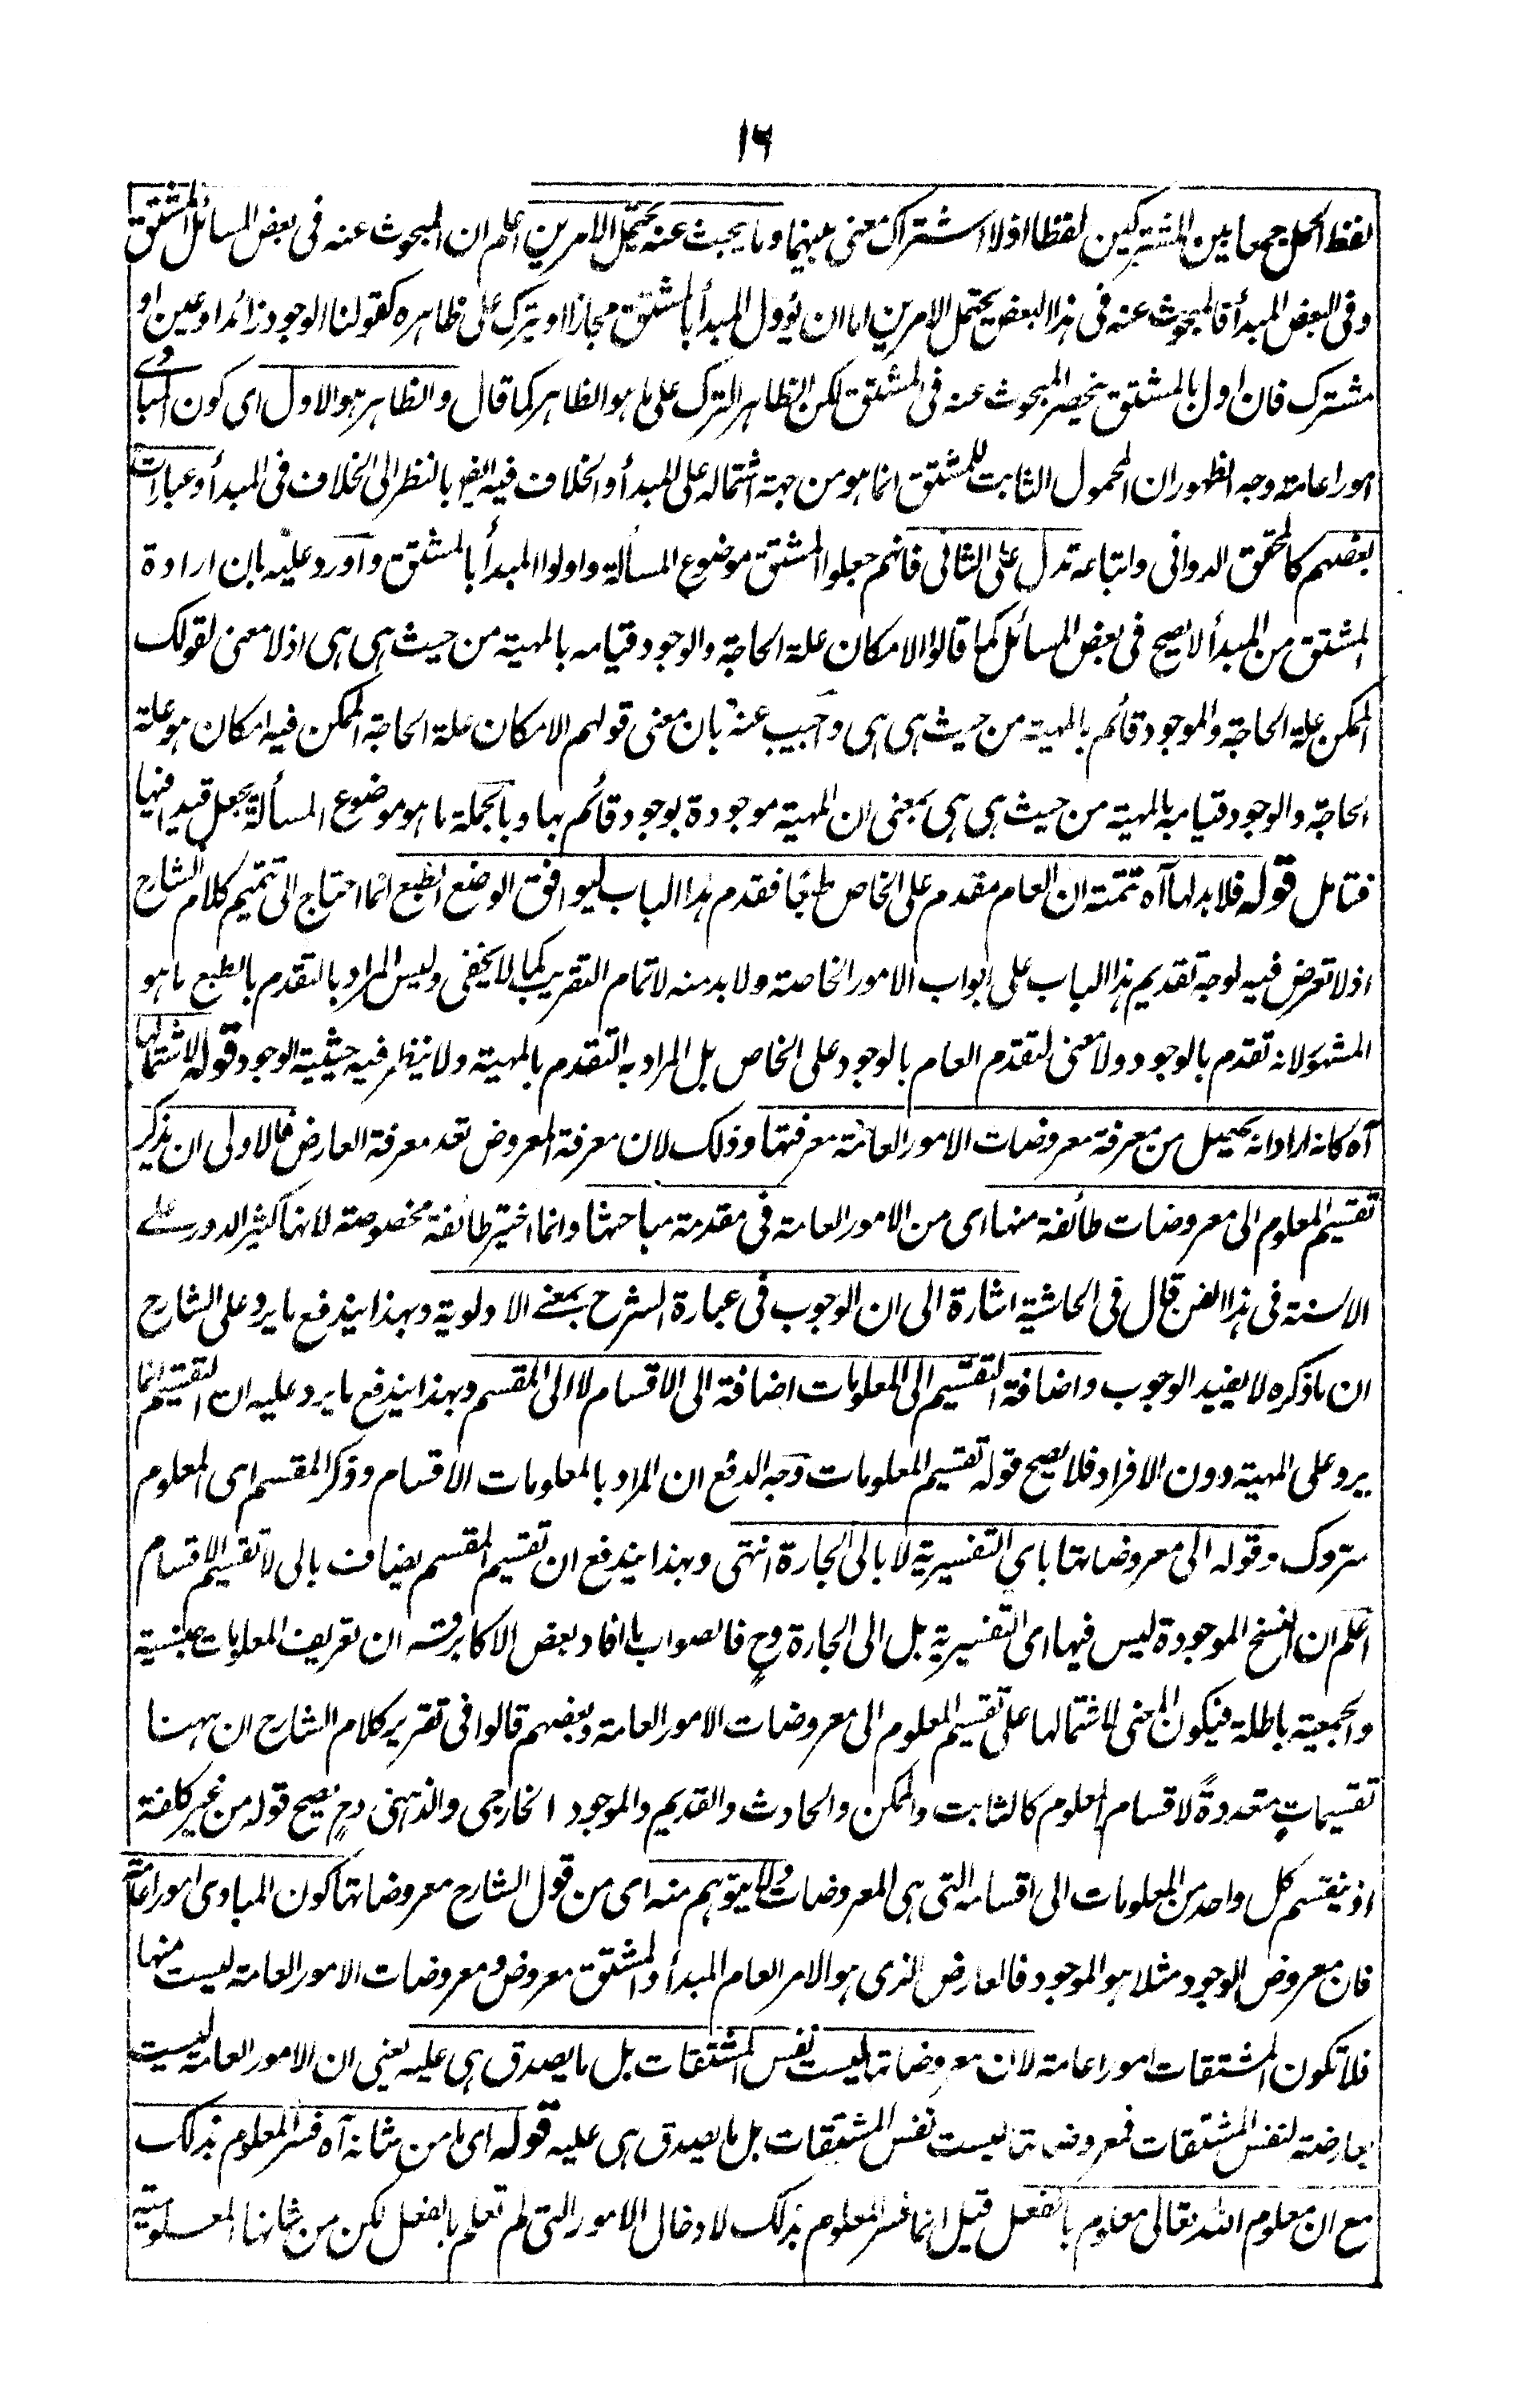 ١٦
لفظ الحمل جمعا بين المشتركين لفظا اذ لا اشتراك معنى بينهما وما يبحث عنه يحتمل الامرين اعلم ان المبحوث عنه فى بعض المسائل المشتق
وفى البعض المبدأ فالمبحوث عنه فى هذا البعض يحتمل الامرين اما ان يؤول المبدأ بالمشتق مجازا او يترك على ظاهره كقولنا الوجود زائد او عين او
مشترك فان اول بالمشتق ينحصر المبحوث عنه فى المشتق لكن الظاهر الترك على ما هو الظاهر كما قال والظاهر هو الاول اى كون المبادى
امورا عامته وجه الظهور ان المحمول الثابت للمشتق انما هو من جهة اشتماله على المبدأ والخلاف فيه ايضا بالنظر الى الخلاف فى المبدأ وعبارات
بعضهم كالمحقق الدوانى واتباعه تدل على الثانى فانهم جعلوا المشتق موضوع المسألة واولوا المبدأ بالمشتق واورد عليه بان ارادة
المشتق من المبدأ لا يصح فى بعض المسائل كما قالوا الامكان علة الحاجة والوجود قيامه بالمهية من حيث هى هى اذ لا معنى لقولك
الممكن علة الحاجة والموجود قائم بالمهية من حيث هى هى واجيب عنه بان معنى قولهم الامكان علة الحاجة الممكن فيه امكان هو علة
الحاجة والوجود قيامه بالمهية من حيث هى هى بمعنى ان المهية موجودة بوجود قائم بها وبالجملة ما هو موضوع المسألة يجعل قيدا فيها
فتامل قوله فلا بد لها آه تتمته ان العام مقدم على الخاص طبعا فقدم هذا الباب ليوافق الوضع الطبع انما احتاج الى تتميم كلام الشارح
اذ لا تعرض فيه لوجه تقديم هذا الباب على ابواب الامور الخاصة ولا بد منه لاتمام التقريب كما لا يخفى وليس المراد بالتقدم بالطبع ما هو
المشهور لانه تقدم بالوجود ولا معنى لتقدم العام بالوجود على الخاص بل المراد به التقدم بالمهية ولا ينظر فيه حيثية الوجود قوله لاشتمالها
آه كانه اراد انه يحصل من معرفة معروضات الامور العامة معرفتها وذلك لان معرفة المعروض تعد معرفة العارض فالاولى ان يذكر
تقسيم المعلوم الى معروضات طائفة منها اى من الامور العامة فى مقدمة مباحثها وانما اختير طائفة مخصوصة لانها كثير الدور على
الالسنة فى هذا الفن قال فى الحاشية اشارة الى ان الوجوب فى عبارة الشرح بمعنى الاولوية وبهذا يندفع ما يرد على الشارح
ان ما ذكره لا يفيد الوجوب واضافة التقسيم الى المعلومات اضافة الى الاقسام لا الى المقسم وبهذا يندفع ما يرد عليه ان التقسيم انما
يرد على المهية دون الافراد فلا يصح قوله تقسيم المعلومات وجه الدفع ان المراد بالمعلومات الاقسام وذكر المقسم اى المعلوم
متروك وقوله الى معروضاتها باى التفسيرية لا بالى الجارة انتهى وبهذا يندفع ان تقسيم المقسم يضاف بالى لا تقسيم الاقسام
اعلم ان النسخ الموجودة ليس فيها اى التفسيرية بل الى الجارة وح فالصواب ما افاد بعض الاكابر قسه ان تعريف المعلومات جنسية
والجمعية باطلة فيكون المعنى لاشتمالها على تقسيم المعلوم الى معروضات الامور العامة وبعضهم قالوا فى تقرير كلام الشارح ان ههنا
تقسيمات متعددة لاقسام المعلوم كالثابت والممكن والحادث والقديم والموجود الخارجى والذهنى وح يصح قوله من غير كلفة
اذ ينقسم كل واحد من المعلومات الى اقسامه التى هى المعروضات ولا يتوهم منه اى من قول الشارح معروضاتها كون المبادى امورا عامة
فان معروض الوجود مثلا هو الموجود فالعارض الذى هو الامر العام المبدأ والمشتق معروض ومعروضات الامور العامة ليست منها
فلا تكون المشتقات امورا عامة لان معروضاتها ليست نفس المشتقات بل ما يصدق هى عليه يعنى ان الامور العامة ليست
بعارضة لنفس المشتقات فمعروضاتها ليست نفس المشتقات بل ما يصدق هى عليه قوله اى ما من شانه آه فسر المعلوم بذلك
مع ان معلوم الله تعالى معلوم بالفعل قيل انما فسر المعلوم بذلك لادخال الامور التى لم تعلم بالفعل لكن من شانها المعلومية